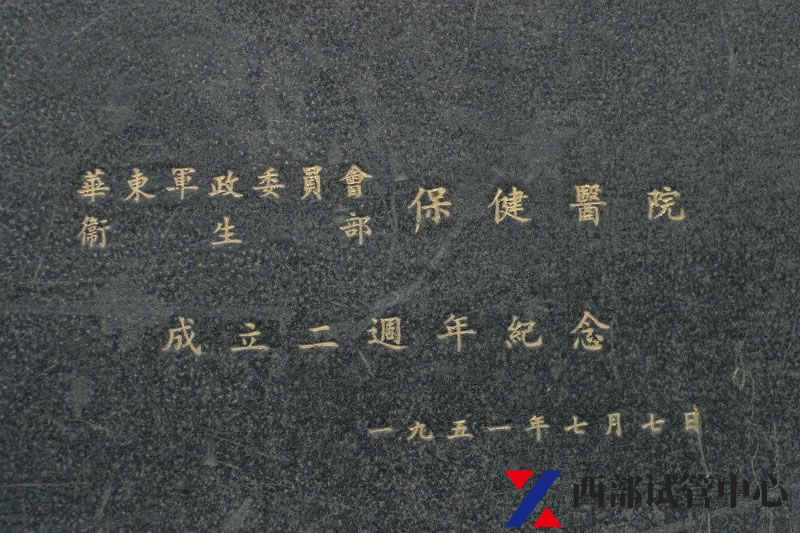 華東軍政委員會
衞生部
保健醫院
成立二週年紀念
一九五一年七月七日
西部试管中心